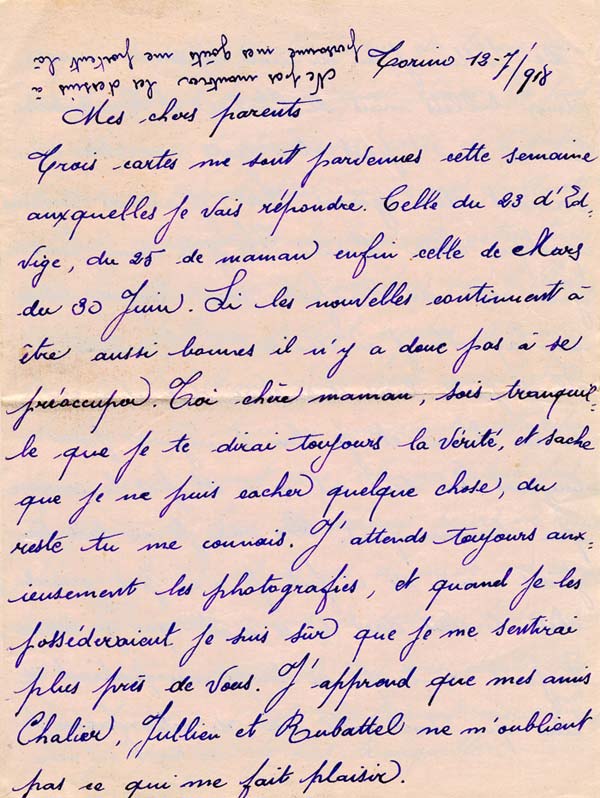 Ne pas montrer les dessins à
personne mes goûts me portent là
Torino 12-7/918
Mes chers parents
Trois cartes me sont parvennes cette semaine
auxquelles je vais répondre. Celle du 23 d'Ed-
vige, du 25 de maman enfin celle de Mars
du 30 Juin. Si les nouvelles continuent à
être aussi bonnes il n'y a donc pas à se
préoccuper. Toi chère maman, sois tranquil-
le que je te dirai toujours la vérité, et sache
que je ne puis cacher quelque chose, du
reste tu me connais. J'attends toujours anx-
ieusement les photografies, et quand je les
posséderaient je suis sûr que je me sentirai
plus près de vous. J'apprend que mes amis
Chalier, Jullien et Rubattel ne m'oublient
pas ce qui me fait plaisir.